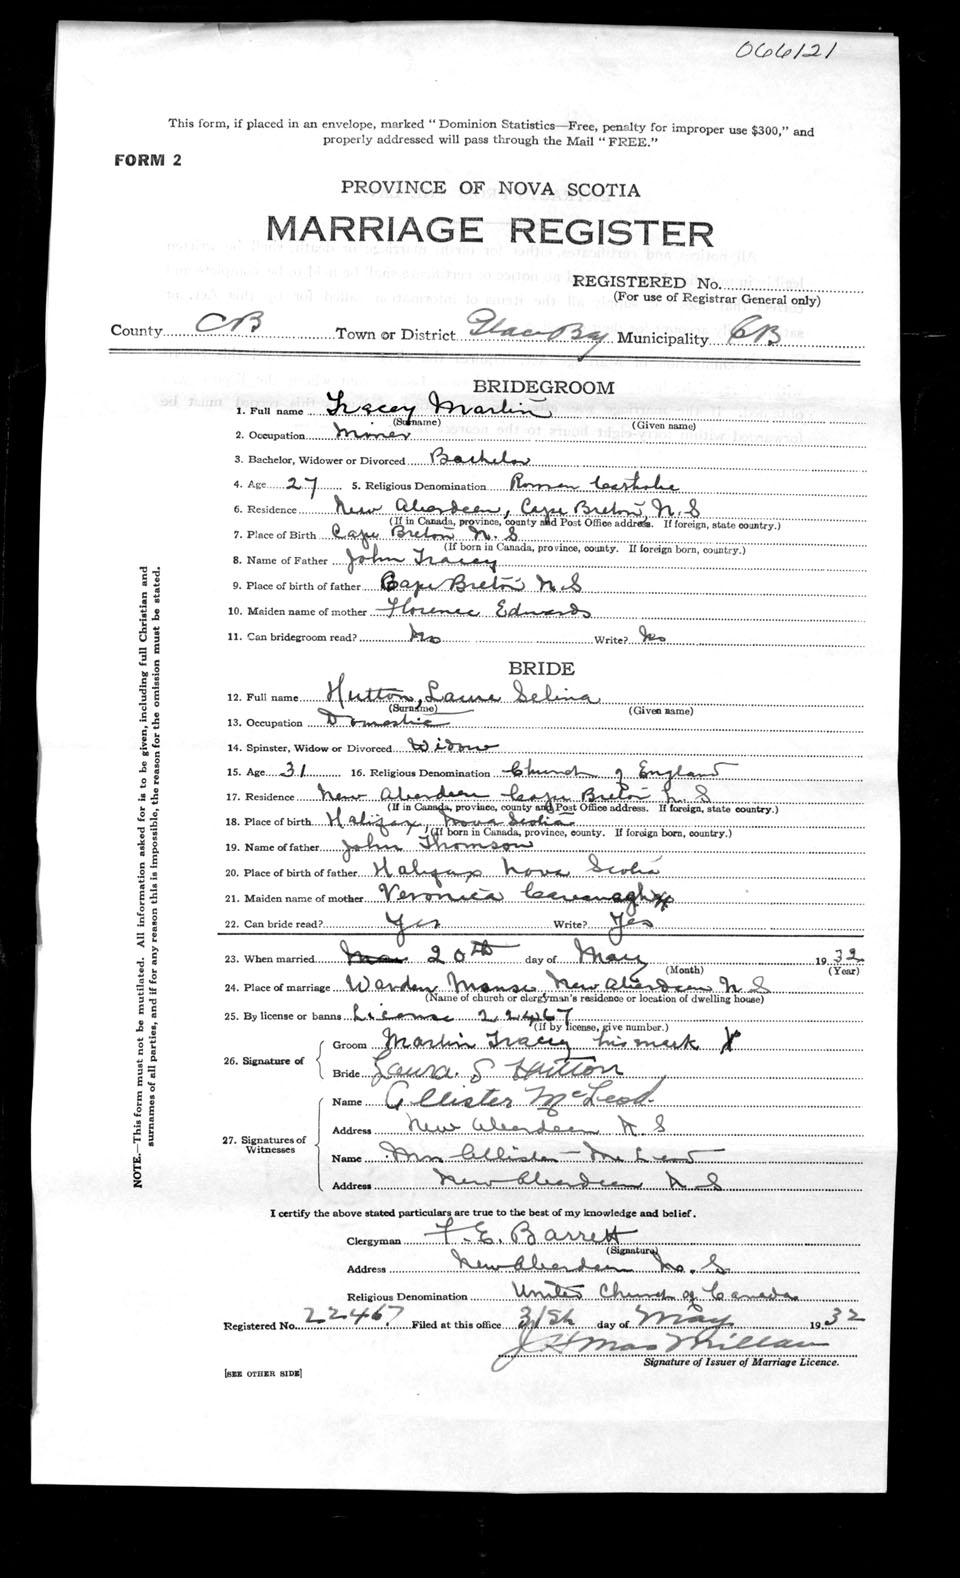 066121
This form, if placed in an envelope, marked "Dominion Statistics—Free, penalty for improper use $300," and
properly addressed will pass through the Mail "FREE."
FORM 2
PROVINCE OF NOVA SCOTIA
MARRIAGE REGISTER
REGISTERED No.
(For use of Registrar General only)
County CB Town or District Glace Bay Municipality CB
BRIDEGROOM
1. Full name Tracey Martin
(Surname) (Given name)
2. Occupation Miner
3. Bachelor, Widower or Divorced Bachelor
4. Age 27 5. Religious Denomination Roman Catholic
6. Residence New Aberdeen, Cape Breton, N.S
(If in Canada, province, county and Post Office address. If foreign, state country.)
7. Place of Birth Cape Breton N.S
(If born in Canada, province, county. If foreign born, country.)
8. Name of Father John Tracey
9. Place of birth of father Cape Breton N S
10. Maiden name of mother Florence Edwards
11. Can bridegroom read? No Write? No
BRIDE
12. Full name Hutton, Laura Selina
(Surname) (Given name)
13. Occupation Domestic
14. Spinster, Widow or Divorced Widow
15. Age 31 16. Religious Denomination Church of England
17. Residence New Aberdeen Cape Breton N.S
(If in Canada, province, county and Post Office address. If foreign, state country.)
18. Place of birth Halifax, Nova Scotia
(If born in Canada, province, county. If foreign born, country.)
19. Name of father John Thomson
20. Place of birth of father Halifax Nova Scotia
21. Maiden name of mother Veronica Cavanagh
22. Can bride read? Yes Write? Yes
23. When married 20th day of May 1932
(Month) (Year)
24. Place of marriage Warden Manse New Aberdeen N S
(Name of church or clergyman's residence or location of dwelling house)
25. By license or banns License 22467
(If by license, give number.)
26. Signature of
Groom Martin Tracey his mark X
Bride Laura. S Hutton
27. Signatures of Witnesses
Name Allister McLeod.
Address New Aberdeen N S
Name Mrs Allister McLeod
Address New Aberdeen N S
I certify the above stated particulars are true to the best of my knowledge and belief.
Clergyman F. E. Barrett
(Signature)
Address New Aberdeen N.S
Religious Denomination United Church of Canada
Registered No. 22467 Filed at this office 31st day of May 1932
J H MacMillan
Signature of Issuer of Marriage Licence.
[SEE OTHER SIDE]
NOTE.—This form must not be mutilated. All information asked for is to be given, including full Christian and
surnames of all parties, and if for any reason this is impossible, the reason for the omission must be stated.